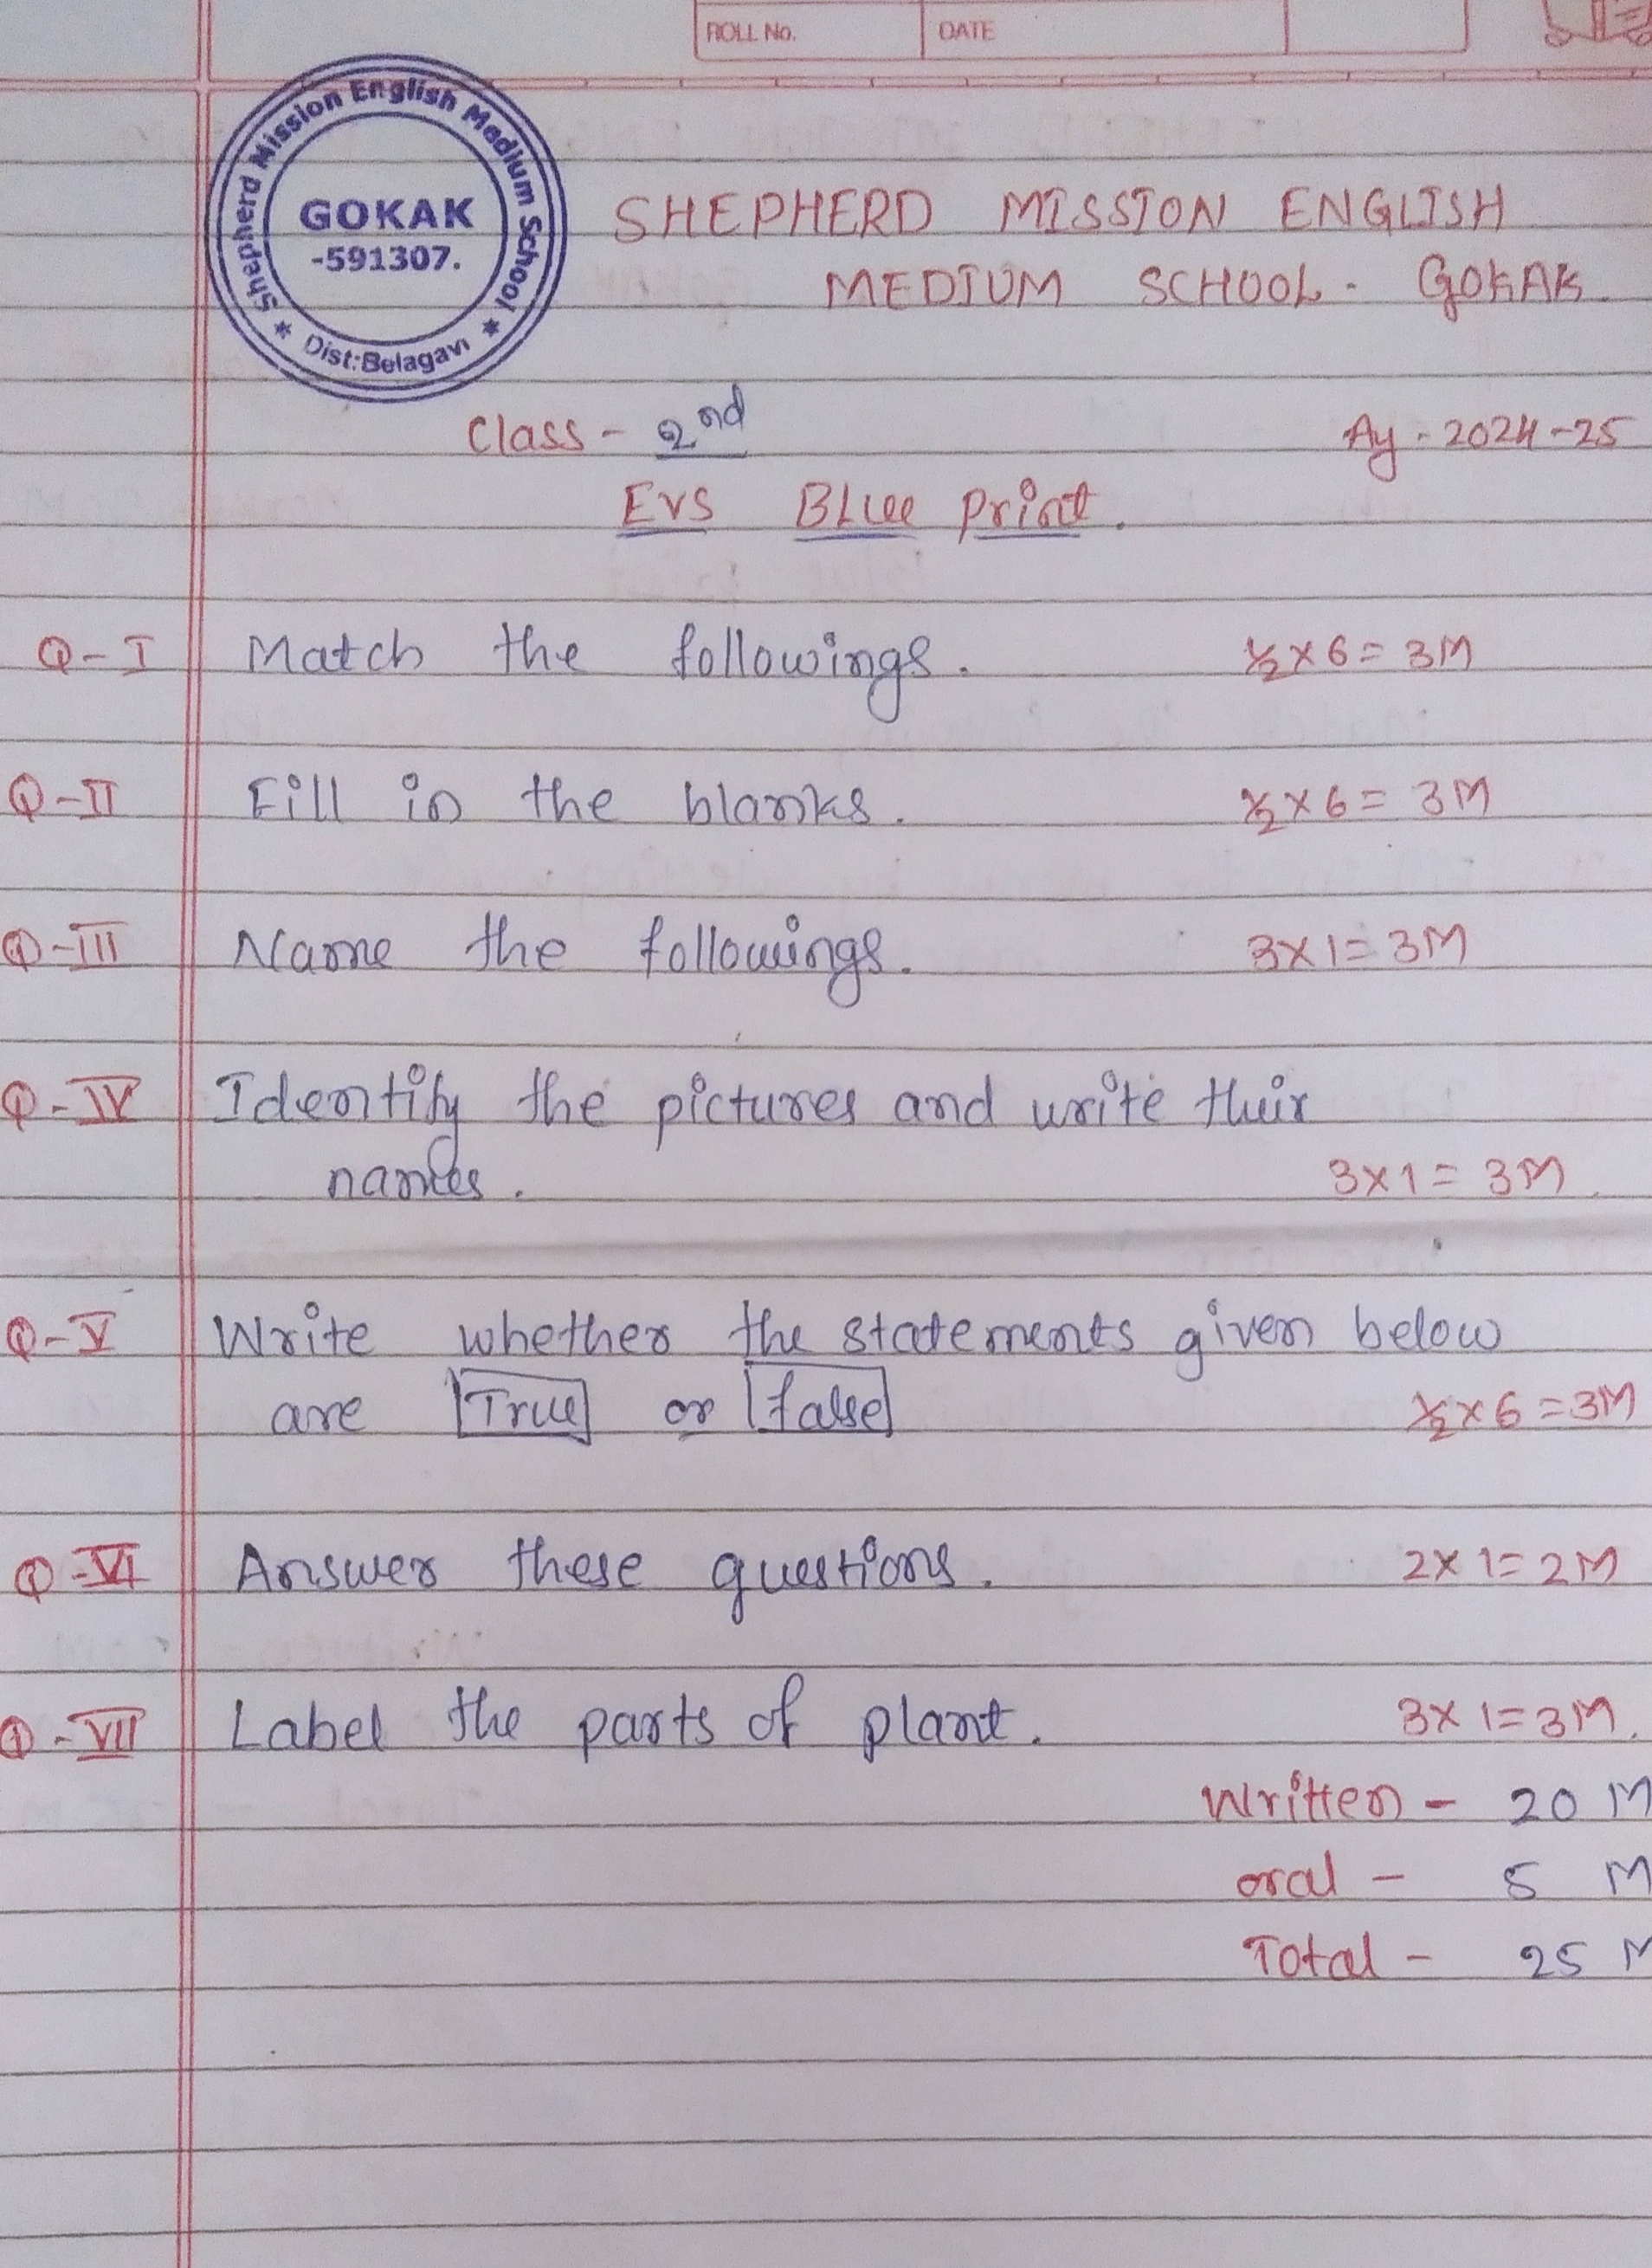 ROLL No. DATE
Shepherd Mission English Medium School
GOKAK
-591307.
★ Dist:Belagavi ★
SHEPHERD MISSION ENGLISH
MEDIUM SCHOOL - GOKAK.
Class - 2nd Ay - 2024-25
EVS BLue print.
Q-I Match the followings. ½ x 6 = 3M
Q-II Fill in the blanks. ½ x 6 = 3M
Q-III Name the followings. 3x1= 3M
Q-IV Identify the pictures and write their
names. 3x1= 3M.
Q-V Write whether the statements given below
are True or false ½ x 6 = 3M
Q-VI Answer these questions. 2x1= 2M
Q-VII Label the parts of plant. 3x1=3M.
Written - 20 M
oral - 5 M
Total - 25 M